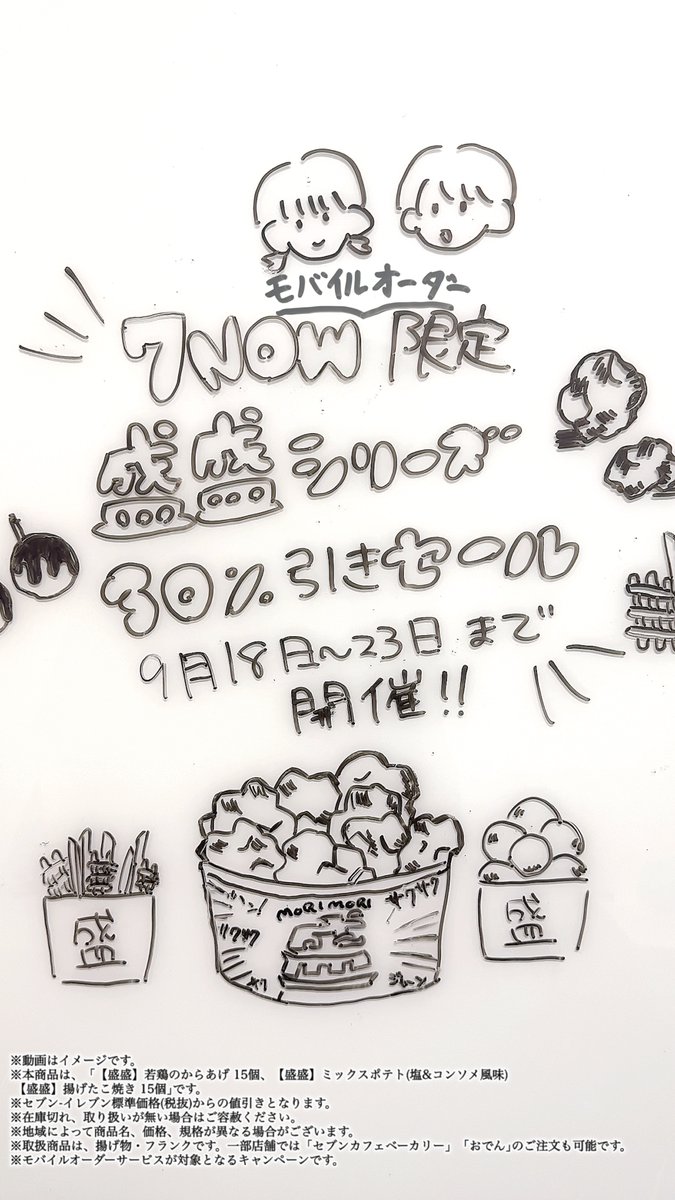 モバイルオーダー
7NOW 限定
盛盛シリーズ
30%引きセール
9月18日~23日まで
開催!!
MORIMORI
サクサク
盛
盛
※動画はイメージです。
※本商品は、「【盛盛】若鶏のからあげ 15個、【盛盛】ミックスポテト(塩&コンソメ風味)
【盛盛】揚げたこ焼き 15個」です。
※セブン-イレブン標準価格(税抜)からの値引きとなります。
※在庫切れ、取り扱いが無い場合はご容赦ください。
※地域によって商品名、価格、規格が異なる場合がございます。
※取扱商品は、揚げ物・フランクです。一部店舗では「セブンカフェベーカリー」「おでん」のご注文も可能です。
※モバイルオーダーサービスが対象となるキャンペーンです。